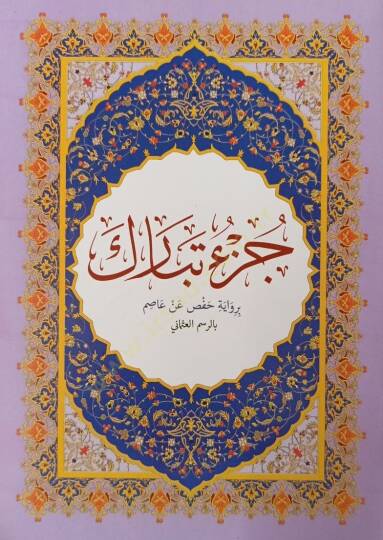 جُزْءُ تَبَارَكَ
بِرِوَايَةِ حَفْص عَنْ عَاصِم
بالرسم العثماني